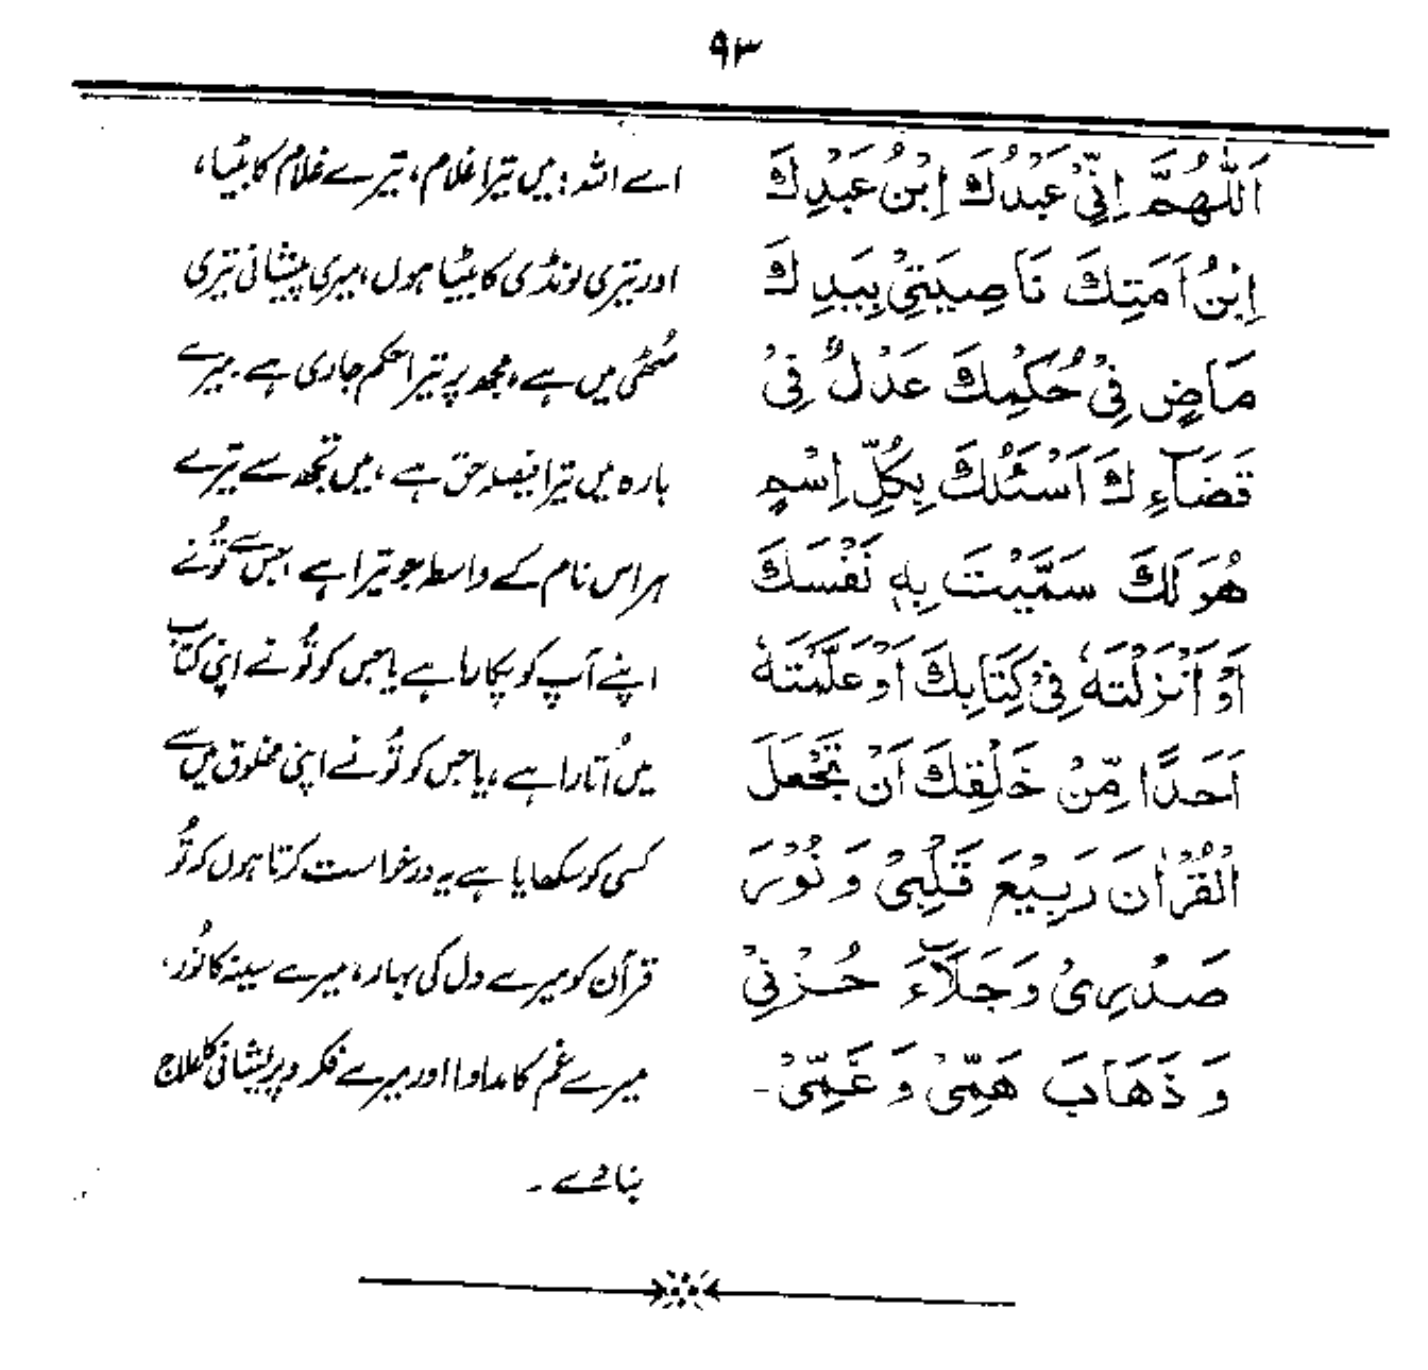 ۹۳
اَللّٰهُمَّ اِنِّیْ عَبْدُكَ اِبْنُ عَبْدِكَ
اِبْنُ اَمَتِكَ نَاصِیَتِیْ بِیَدِكَ
مَاضٍ فِیْ حُكْمِكَ عَدْلٌ فِیْ
قَضَآءِكَ اَسْئَلُكَ بِكُلِّ اِسْمٍ
هُوَ لَكَ سَمَّیْتَ بِهٖ نَفْسَكَ
اَوْ اَنْزَلْتَهٗ فِیْ كِتَابِكَ اَوْ عَلَّمْتَهٗ
اَحَدًا مِّنْ خَلْقِكَ اَنْ تَجْعَلَ
الْقُرْاٰنَ رَبِیْعَ قَلْبِیْ وَ نُوْرَ
صَدْرِیْ وَ جَلَآءَ حُزْنِیْ
وَ ذَهَابَ هَمِّیْ وَ غَمِّیْ۔
اے اللہ: میں تیرا غلام، تیرے غلام کا بیٹیا،
اور تیری لونڈی کا بیٹیا ہوں، میری پیشانی تیری
مُٹھی میں ہے، مجھ پر تیرا حکم جاری ہے۔ میرے
بارہ میں تیرا فیصلہ حق ہے، میں تجھ سے تیرے
ہر اس نام کے واسطہ جو تیرا ہے، جس سے تُو نے
اپنے آپ کو پکارا ہے یا جس کو تُو نے اپنی کتاب
میں اُتارا ہے، یا جس کو تُو نے اپنی مخلوق میں سے
کسی کو سکھایا ہے یہ درخواست کرتا ہوں کہ تُو
قرآن کو میرے دل کی بہار، میرے سینہ کا نُور،
میرے غم کا مداوا اور میرے فکر و پریشانی کا علاج
بنا دے۔